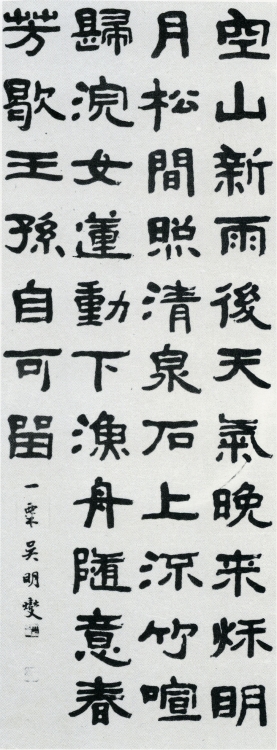 空山新雨後天氣晚来秌明
月松間照清泉石上流竹喧
歸浣女蓮動下漁舟隨意春
芳歇王孫自可留
一粟吳明燮